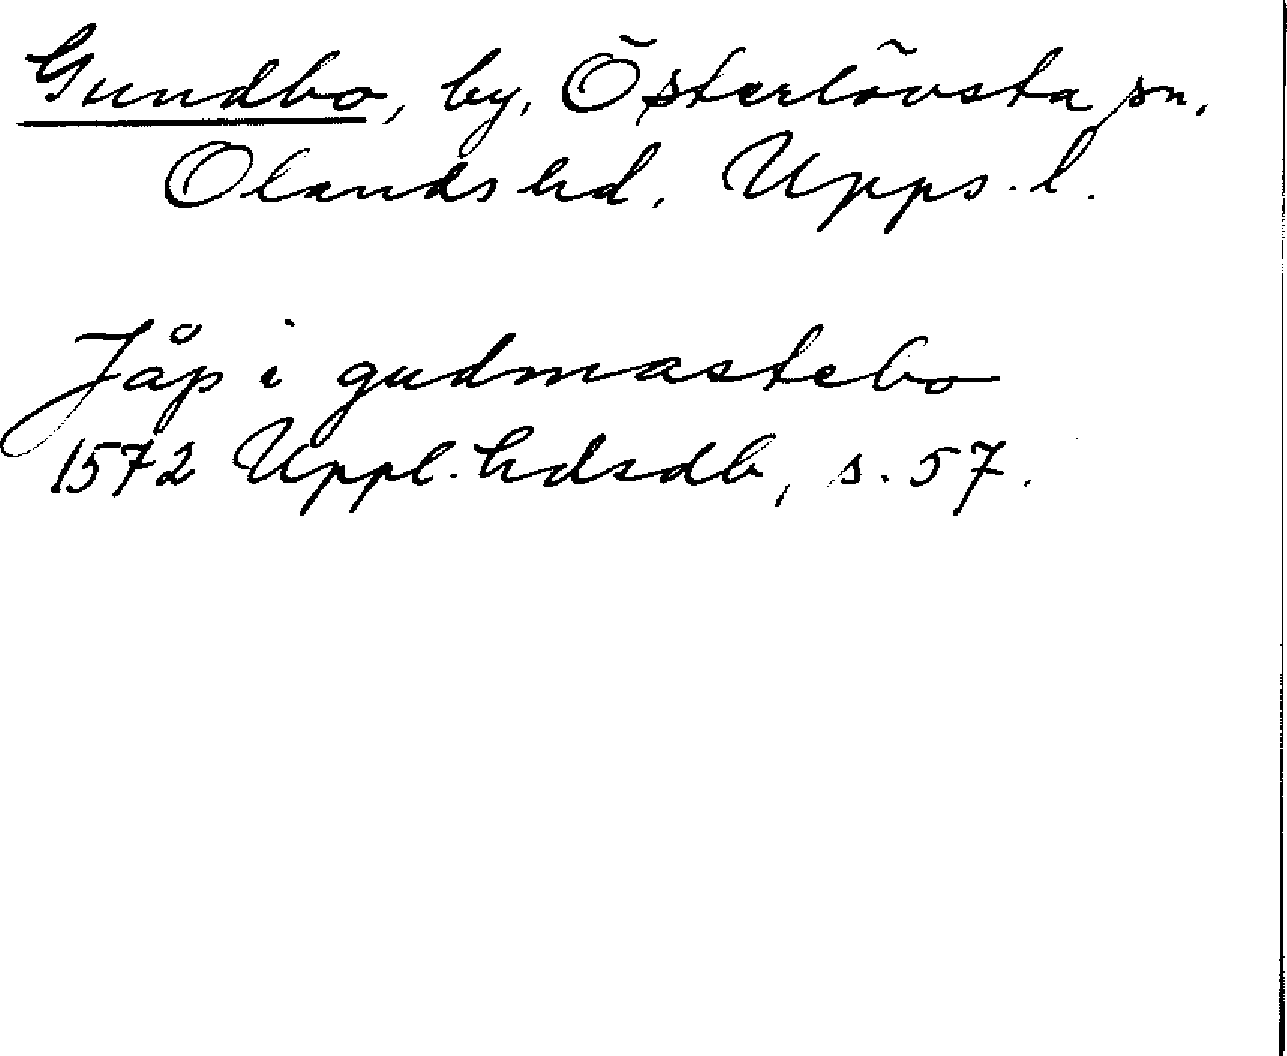 Gundbo, by, Österlövsta sn,
Olands hd, Upps. l.
Jåp i gudmastebo
1572 Uppl. hdsdb, s. 57.